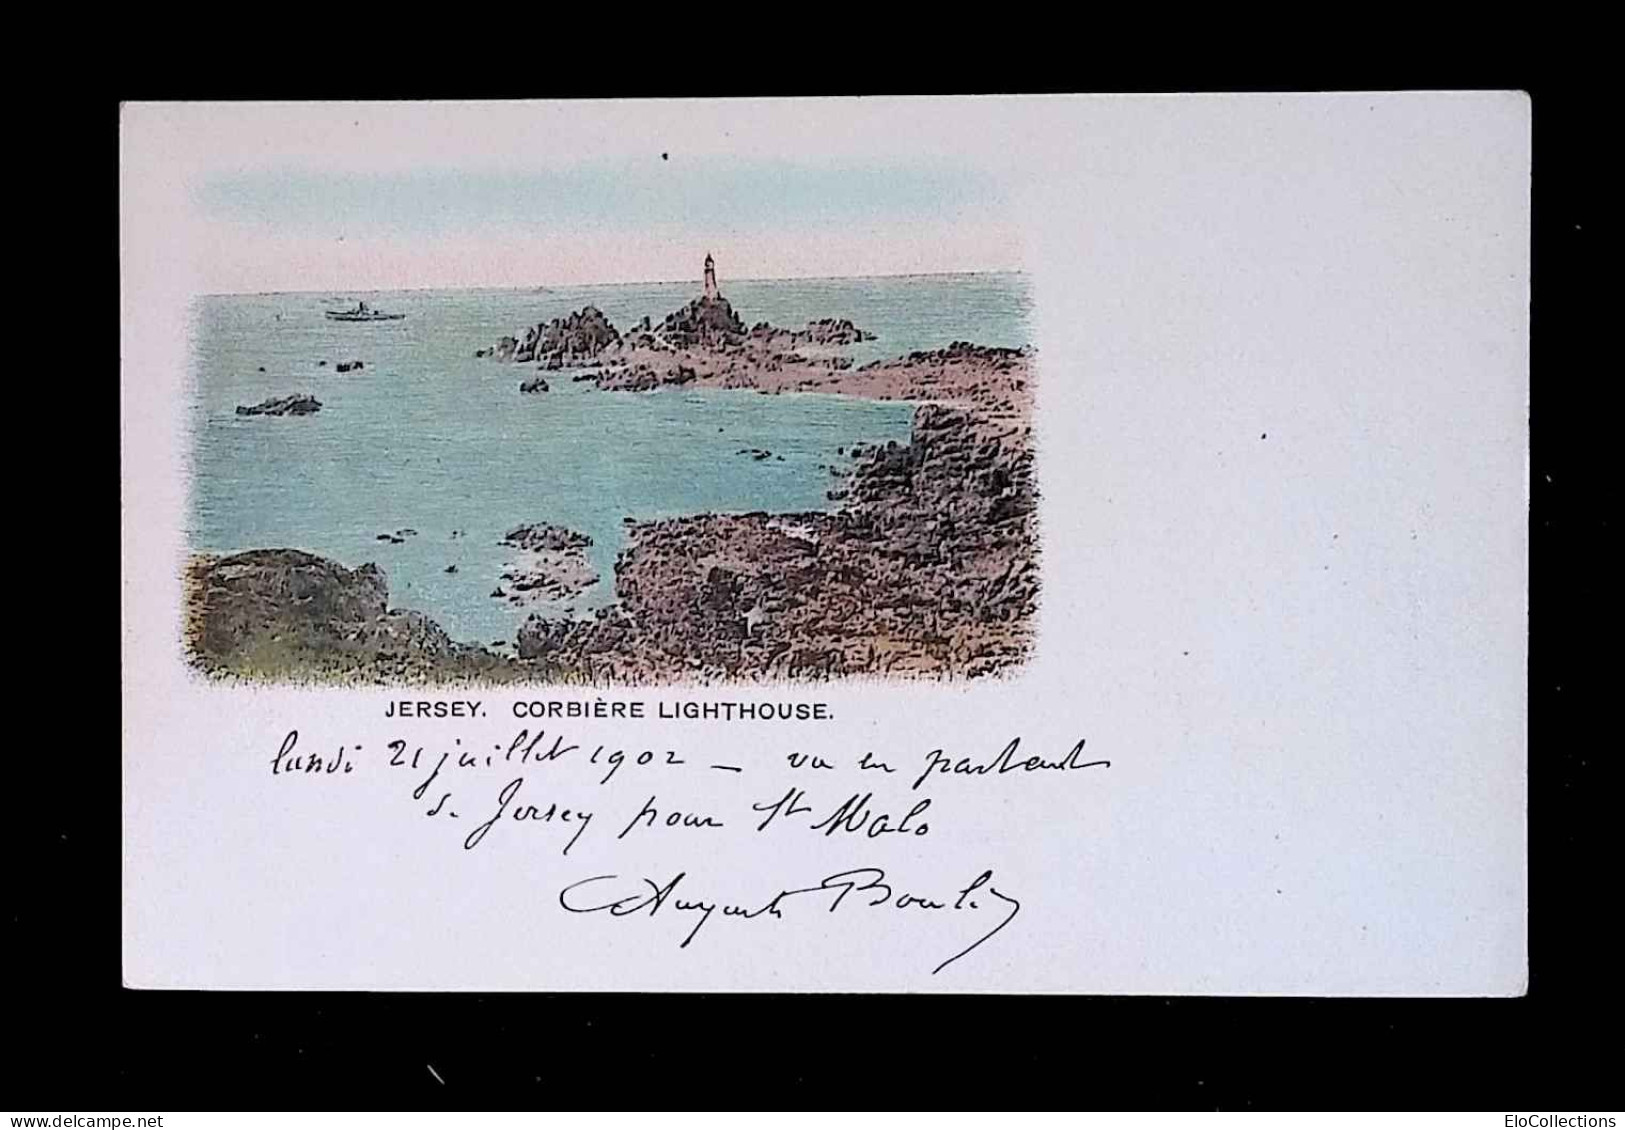 JERSEY. CORBIÈRE LIGHTHOUSE.
lundi 21 juillet 1902 – vu en partant
de Jersey pour St Malo
Auguste
www.delcampe.net
EloCollections